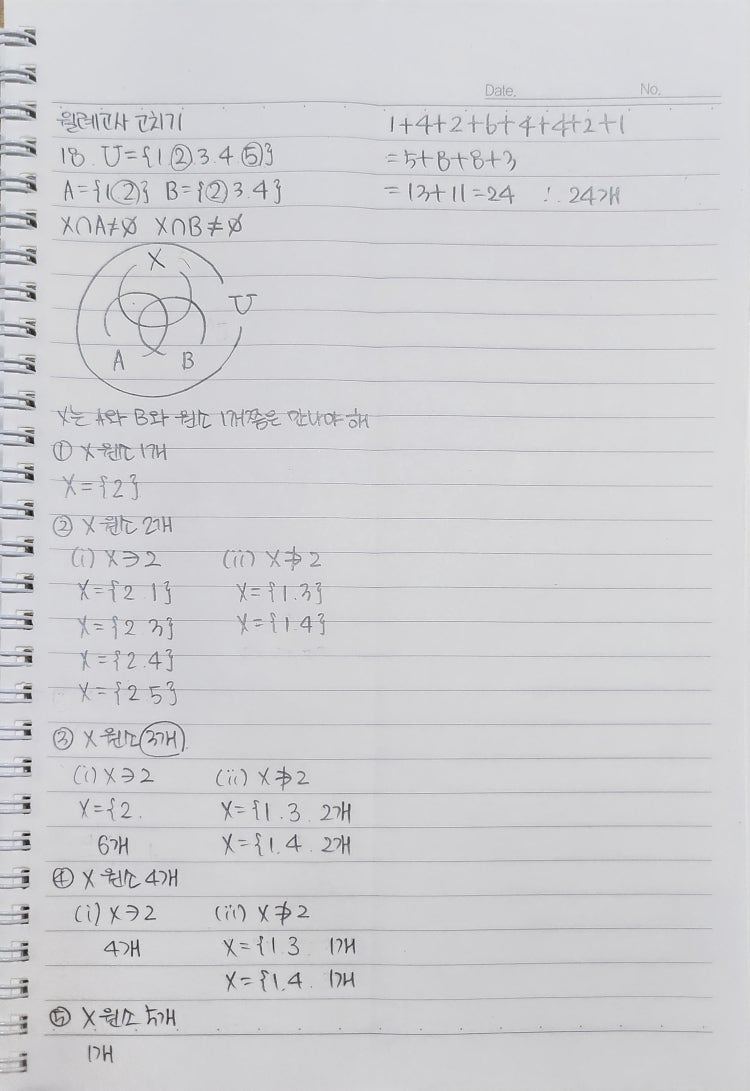 Date. No.
월례고사 고치기
18. U={1 2 3. 4 5}
A={1 2} B={2 3. 4}
X∩A≠∅ X∩B≠∅
X
U
A B
X는 A와 B와 원소 1개쯤은 만나야 해
① X 원소 1개
X={2}
② X 원소 2개
(i) X∋2 (ii) X∌2
X={2. 1} X={1. 3}
X={2 3} X={1. 4}
X={2. 4}
X={2 5}
③ X 원소 3개
(i) X∋2 (ii) X∌2
X={2. X={1. 3. 2개
6개 X={1. 4. 2개
④ X 원소 4개
(i) X∋2 (ii) X∌2
4개 X={1. 3 1개
X={1. 4. 1개
⑤ X 원소 5개
1개
1+4+2+6+4+4+2+1
=5+8+8+3
=13+11=24 ∴ 24개